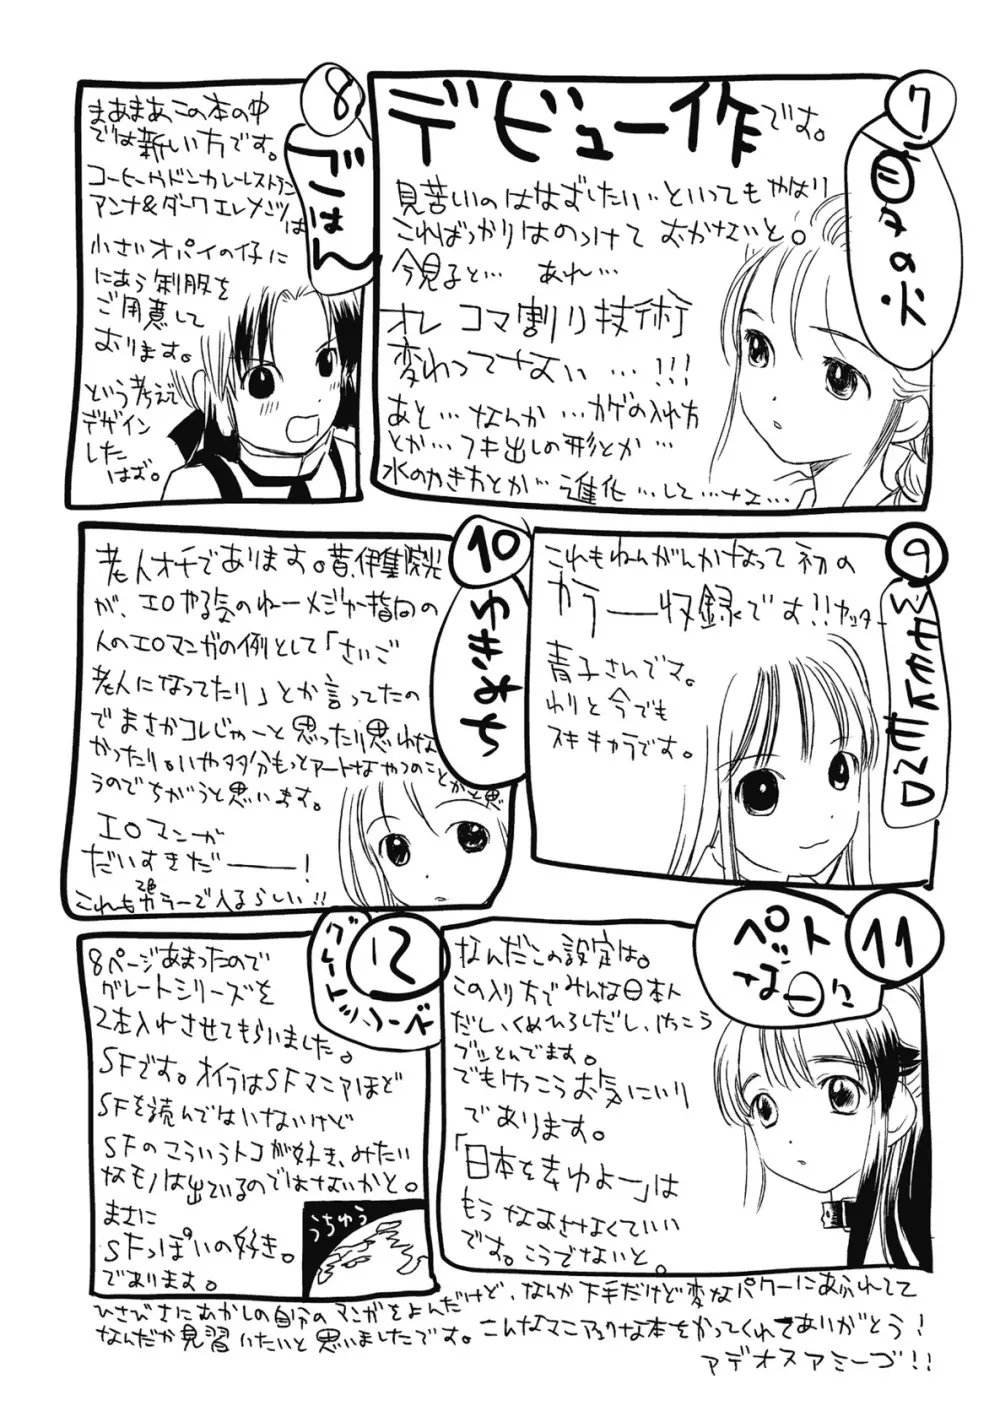 7
夏の火
デビュー作です。
見苦しいのははずしたい‥といってもやはり
こればっかりはのっけておかないと。
今見ると… あれ…
オレ コマ割り技術
変わってない…!!!
あと…なんか…カゲの入れ方
とか…フキ出しの形とか…
水のかき方とか…進化…して…な…
8
ごはん
まあまあこの本の中
では新しい方です。
コーヒーやドンカレーレストラン
アンナ&ダークエレメンツは
小さいオパイの仔に
にあう制服を
ご用意して
おります。
という考えで
デザイン
した
はず。
9
WEEKEND
これもねんがんかなって初の
カラー収録です!!ヤッター
青子さんでマ。
わりと今でも
スキキャラです。
10
ゆきみち
老人オチであります。昔、伊集院光
が、エロやる気のねーメジャー指向の
人のエロマンガの例として「さいご
老人になってたり」とか言ってたの
でまさかコレじゃーと思ったり思わな
かったり。いや多分もっとアートなやつのことかと思
うのでちがうと思います。
エロマンガ
だいすきだ――!
これも2色カラーで入るらしい!!
11
ペット
な日に
なんだこの設定は。
この入り方でみんな日本人
だし、くめひろしだし、けっこう
ブッとんでます。
でもけっこうお気にいり
であります。
「日本を幸ゆよー」は
もうなおさなくていい
です。こうでないと。
12
8ページあまったので
グレートシリーズを
2本入れさせてもらいました。
SFです。オイラはSFマニアほど
SFを読んではいないけど
SFのこういうトコが好き、みたい
なモノは出ているのではないかと。
まさに
SFっぽいの好き。
であります。
うちゅう
ひさびさにむかしの自分のマンガをよんだけど、なんか下手だけど変なパワーにあふれてて
なんだか見習いたいと思いましたです。こんなマニアックな本をかってくれてありがとう!
アデオスアミーゴ!!